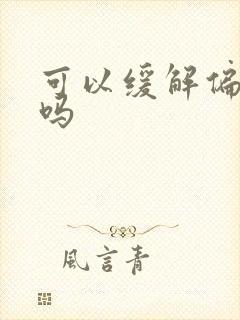 可以缓解偏
吗
風言青